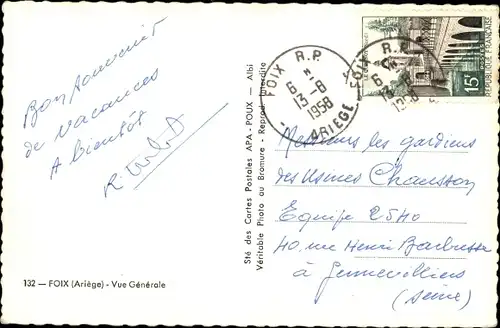 Bon souvenir
de vacances
A bientôt
R.
132 — FOIX (Ariège) - Vue Générale
Sté des Cartes Postales APA - POUX — Albi
Véritable Photo au Bromure - Reprod. Interdite
FOIX R.P.
6
13-8
1958
ARIEGE
FOIX R.P.
6
13-8
1958
15F
REPUBLIQUE FRANÇAISE
Messieurs les gardiens
des Usines Chausson
Equipe 2540
40, rue Henri Barbusse
à Gennevilliers
(Seine)